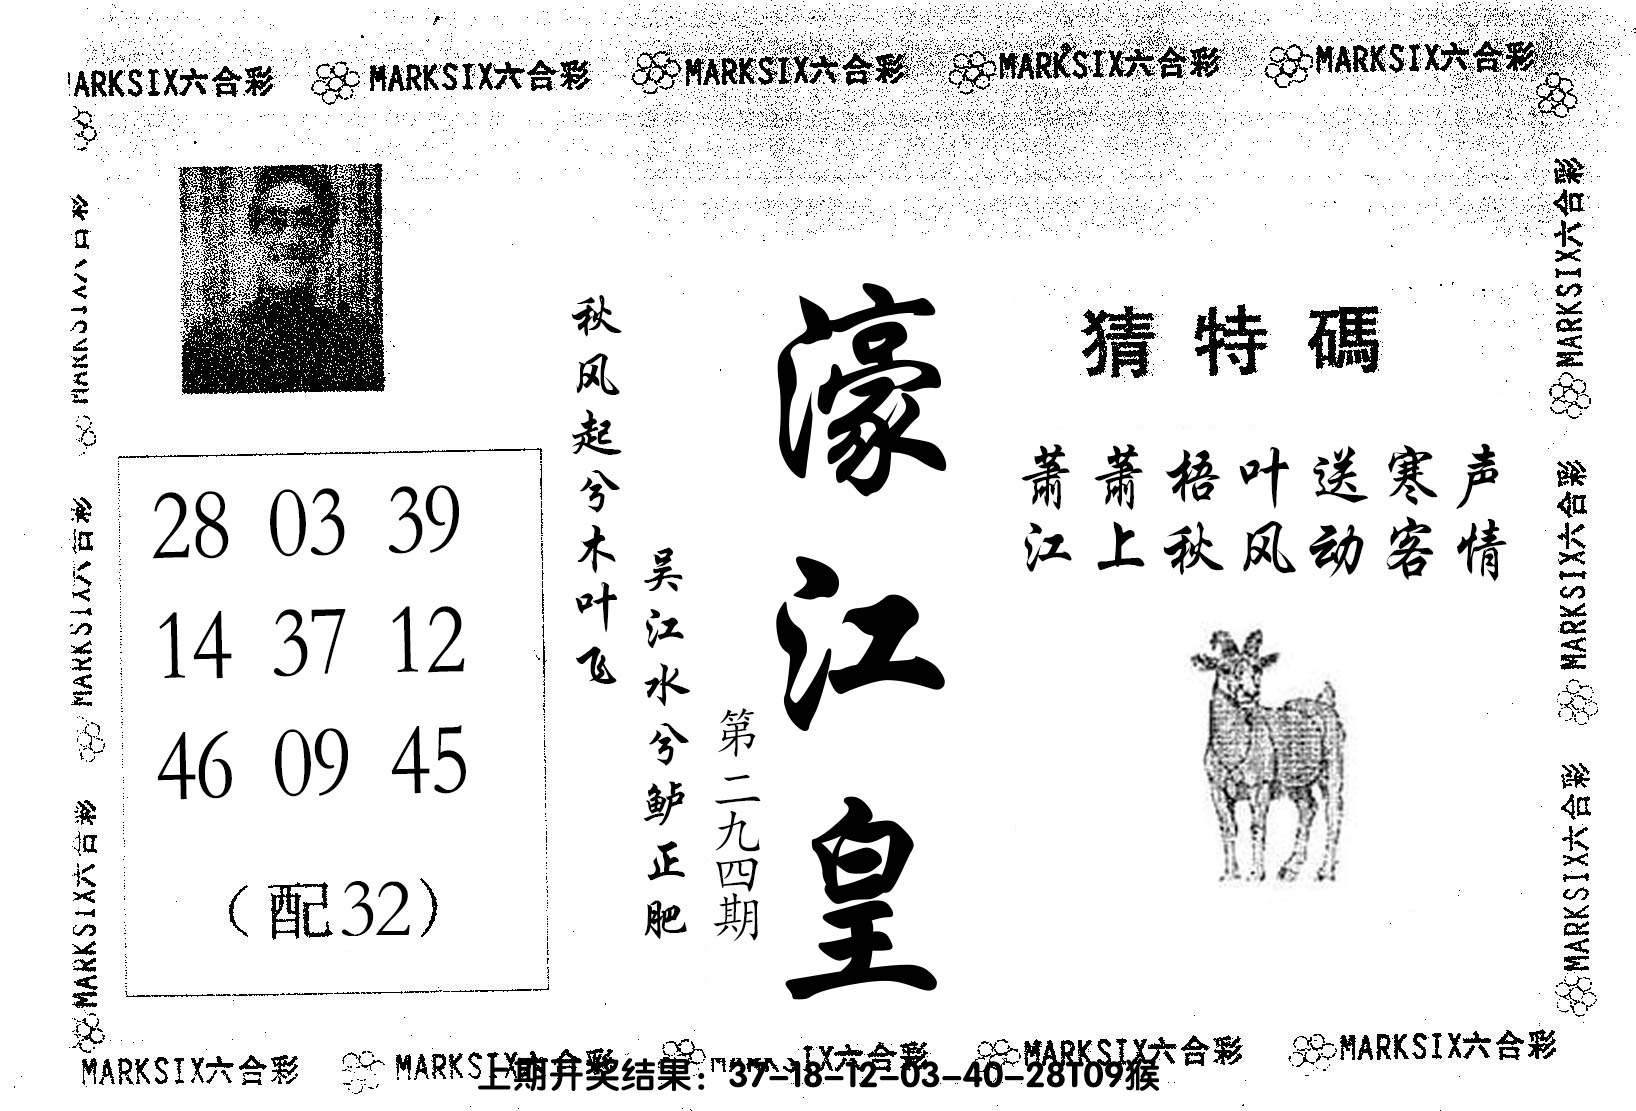 MARKSIX六合彩 MARKSIX六合彩 MARKSIX六合彩 MARKSIX六合彩 MARKSIX六合彩
MARKSIX六合彩
MARKSIX六合彩
MARKSIX六合彩
猜特碼
萧萧梧叶送寒声
江上秋风动客情
濠江皇
第二九四期
秋风起兮木叶飞
吴江水兮鲈正肥
28 03 39
14 37 12
46 09 45
（配32）
MARKSIX六合彩
MARKSIX六合彩
MARKSIX六合彩
MARKSIX六合彩 MARKSIX六合彩 MARKSIX六合彩 MARKSIX六合彩 MARKSIX六合彩
上期开奖结果：37-18-12-03-40-28T09猴